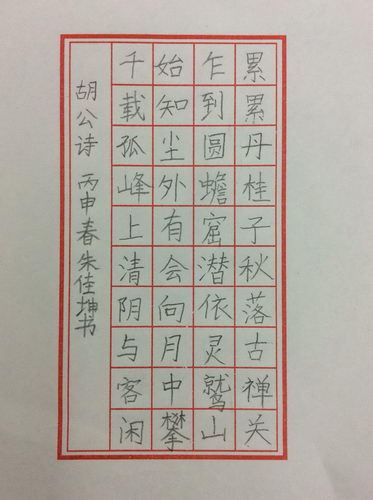 累累丹桂子秋落古禅关
乍到圆蟾窟潜依灵鹫山
始知尘外有会向月中攀
千载孤峰上清阴与客闲
胡公诗 丙申春朱佳坤书